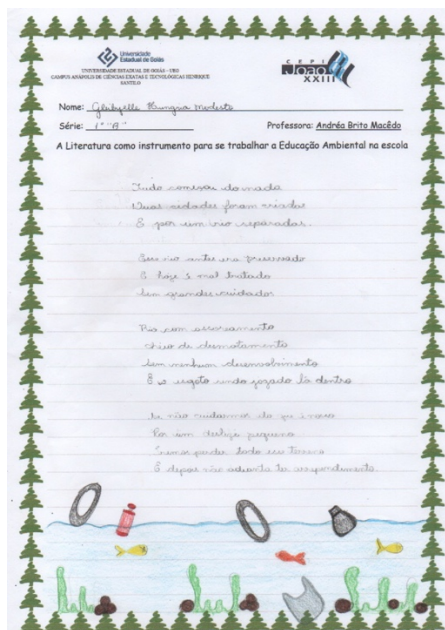 Universidade
Estadual de Goiás
UNIVERSIDADE ESTADUAL DE GOIÁS - UEG
CAMPUS ANÁPOLIS DE CIÊNCIAS EXATAS E TECNOLÓGICAS HENRIQUE
SANTILO
CEPI
João
XXIII
Nome: Modesto
Série: 1° "A" Professora: Andréa Brito Macêdo
A Literatura como instrumento para se trabalhar a Educação Ambiental na escola
Tudo começou do nada
Duas cidades foram criadas
E por um rio separadas.
Esse rio antes era preservado
E hoje é mal tratado
Sem grandes cuidados
Rio com assoreamento
cheio de desmatamento
Sem nenhum desenvolvimento
E o esgoto sendo jogado lá dentro
Se não cuidarmos do que é nosso
Por um deslize pequeno
Iremos perder todo esse terreno
E depois não adianta ter arrependimento.